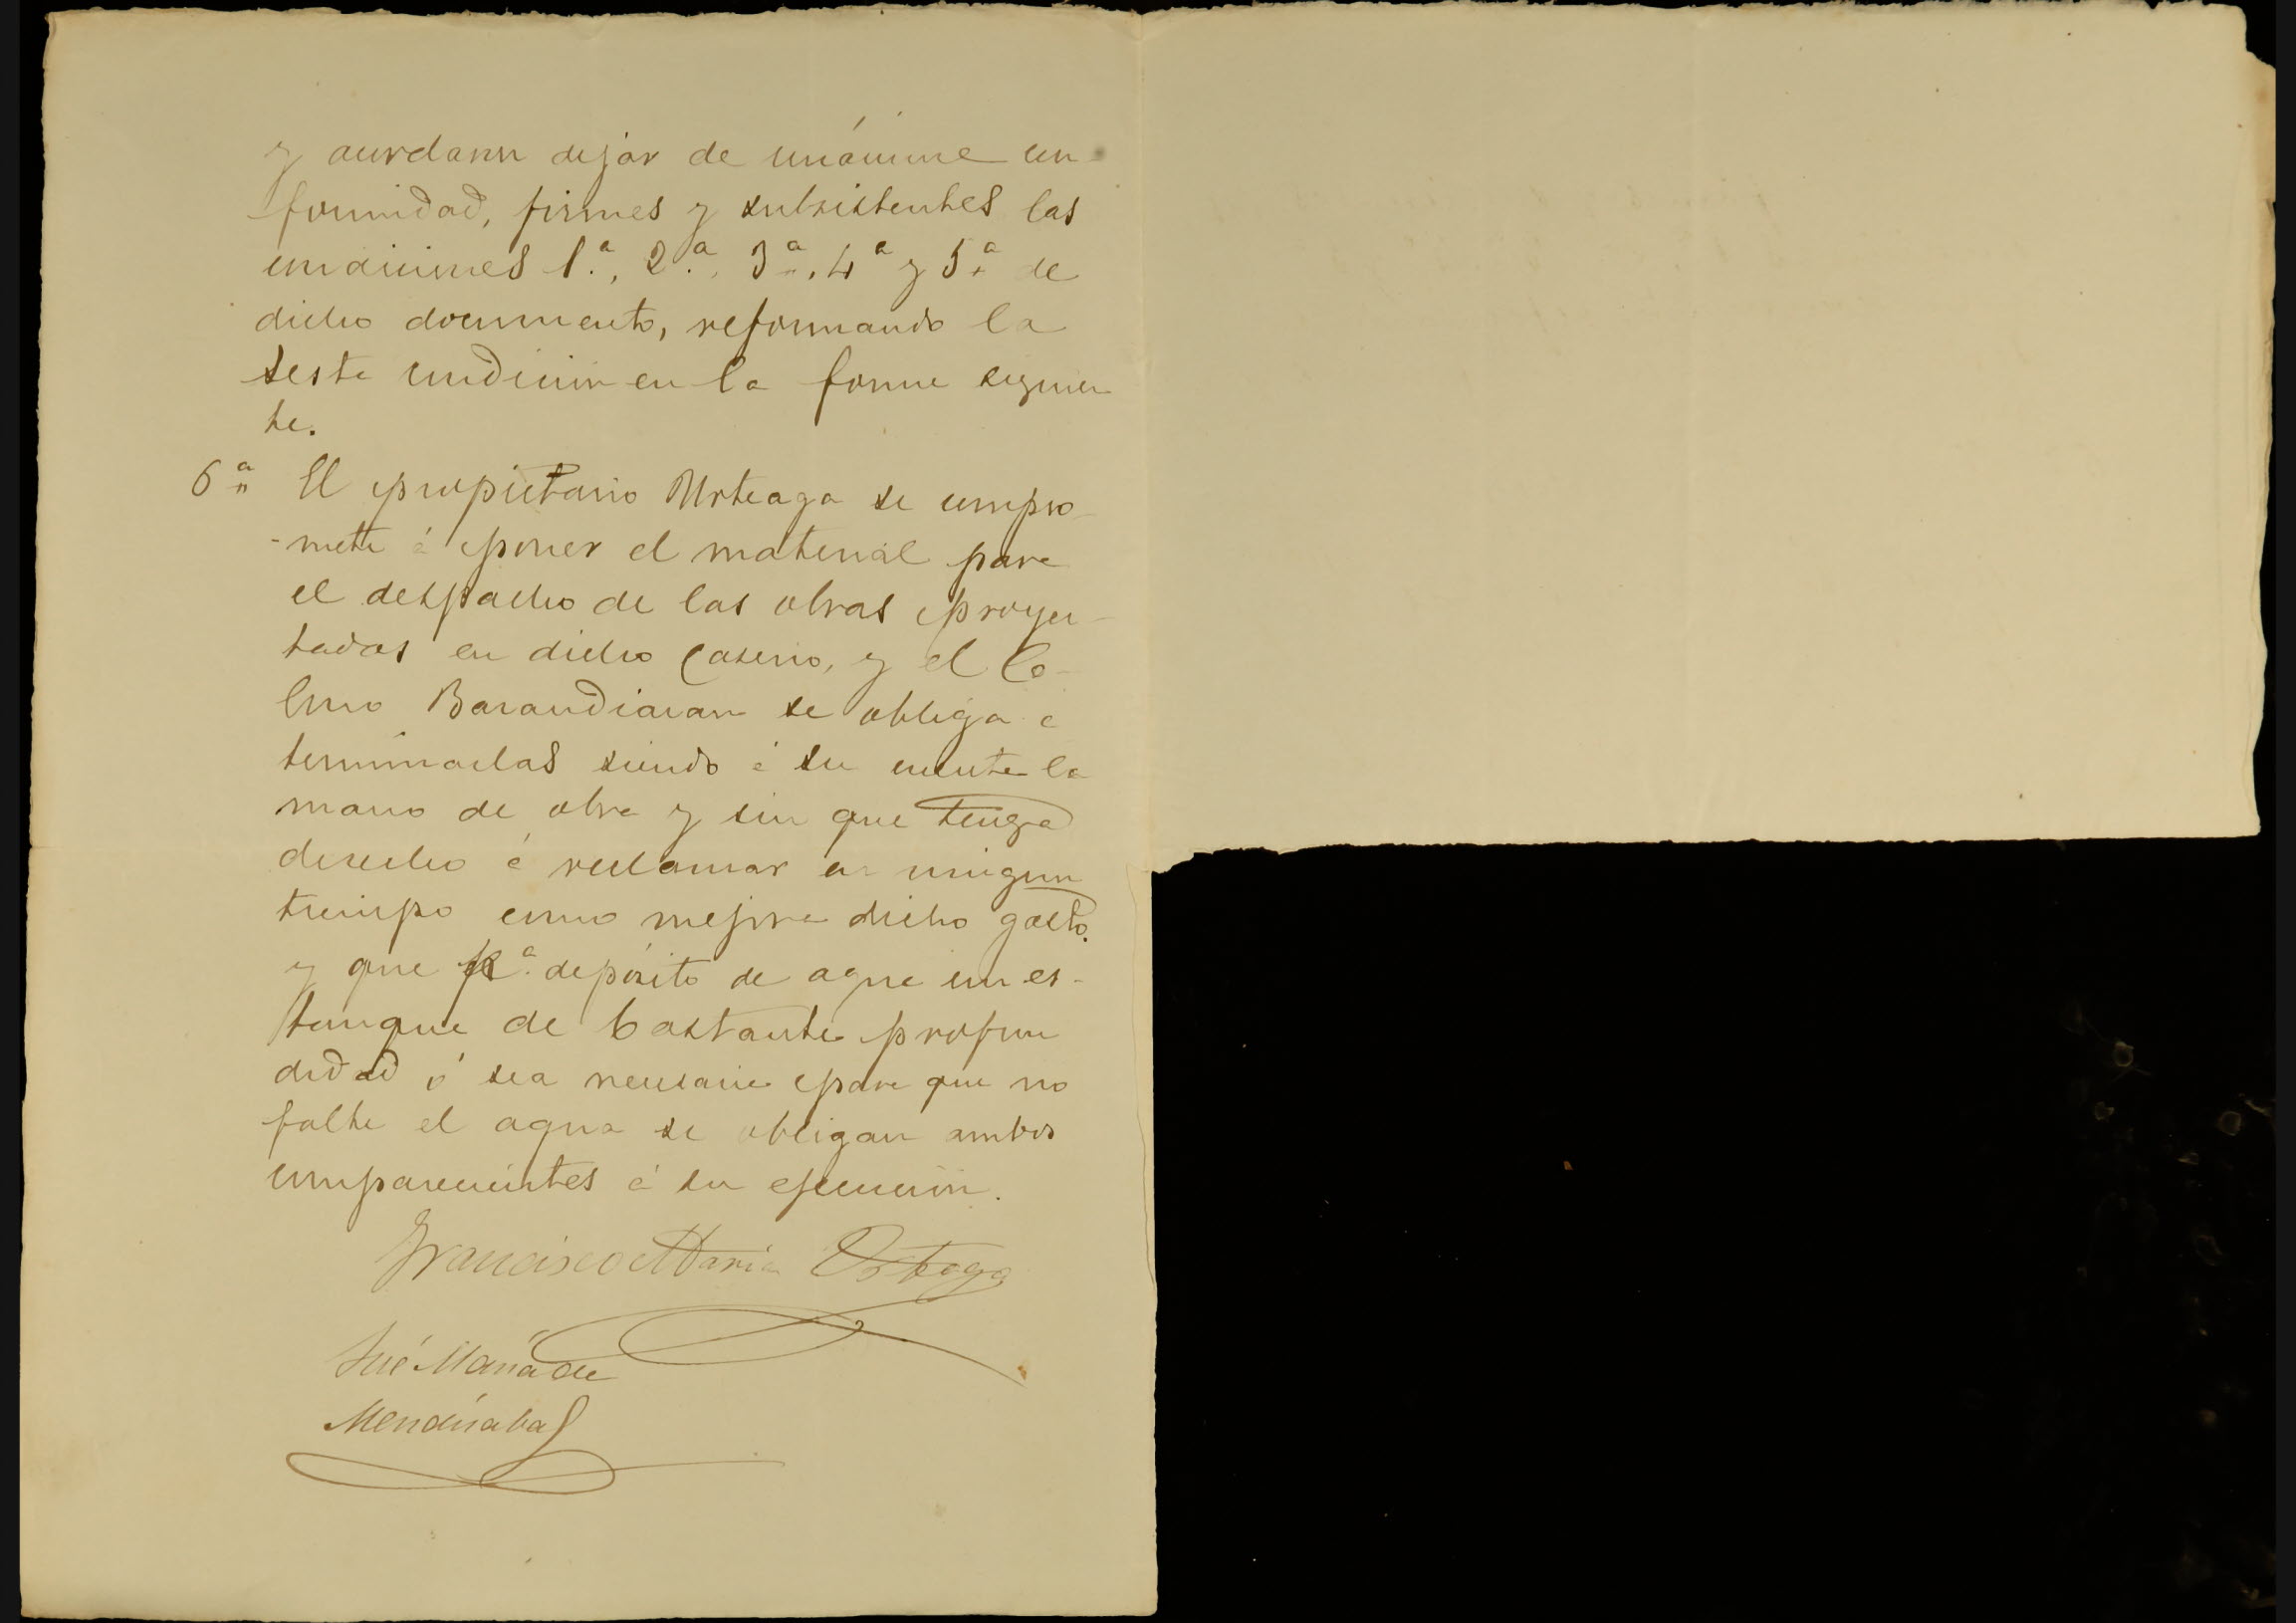 y acordaron dejar de unánime con
formidad, firmes y subsistentes las
condiciones 1.ª, 2.ª, 3.ª, 4ª y 5.ª de
dicho documento, reformando la
sesta condicion en la forma siguien
te.
6.ª El propietario Urteaga se compro
-mete á poner el material para
el despacho de las obras proyec-
tadas en dicho Caserio, y el Co-
lono Barandiaran se obliga á
terminarlas siendo á su cuenta la
mano de obra y sin que tenga
derecho á reclamar en ningun
tiempo como mejora dicho gasto.
y que pª. depósito de agua un es-
tanque de bastante profun
didad ó sea necesario para que no
falte el agua se obligan ambos
comparecientes á su ejecucion.
Francisco Maria Orteaga
José Maria de
Mendizabal